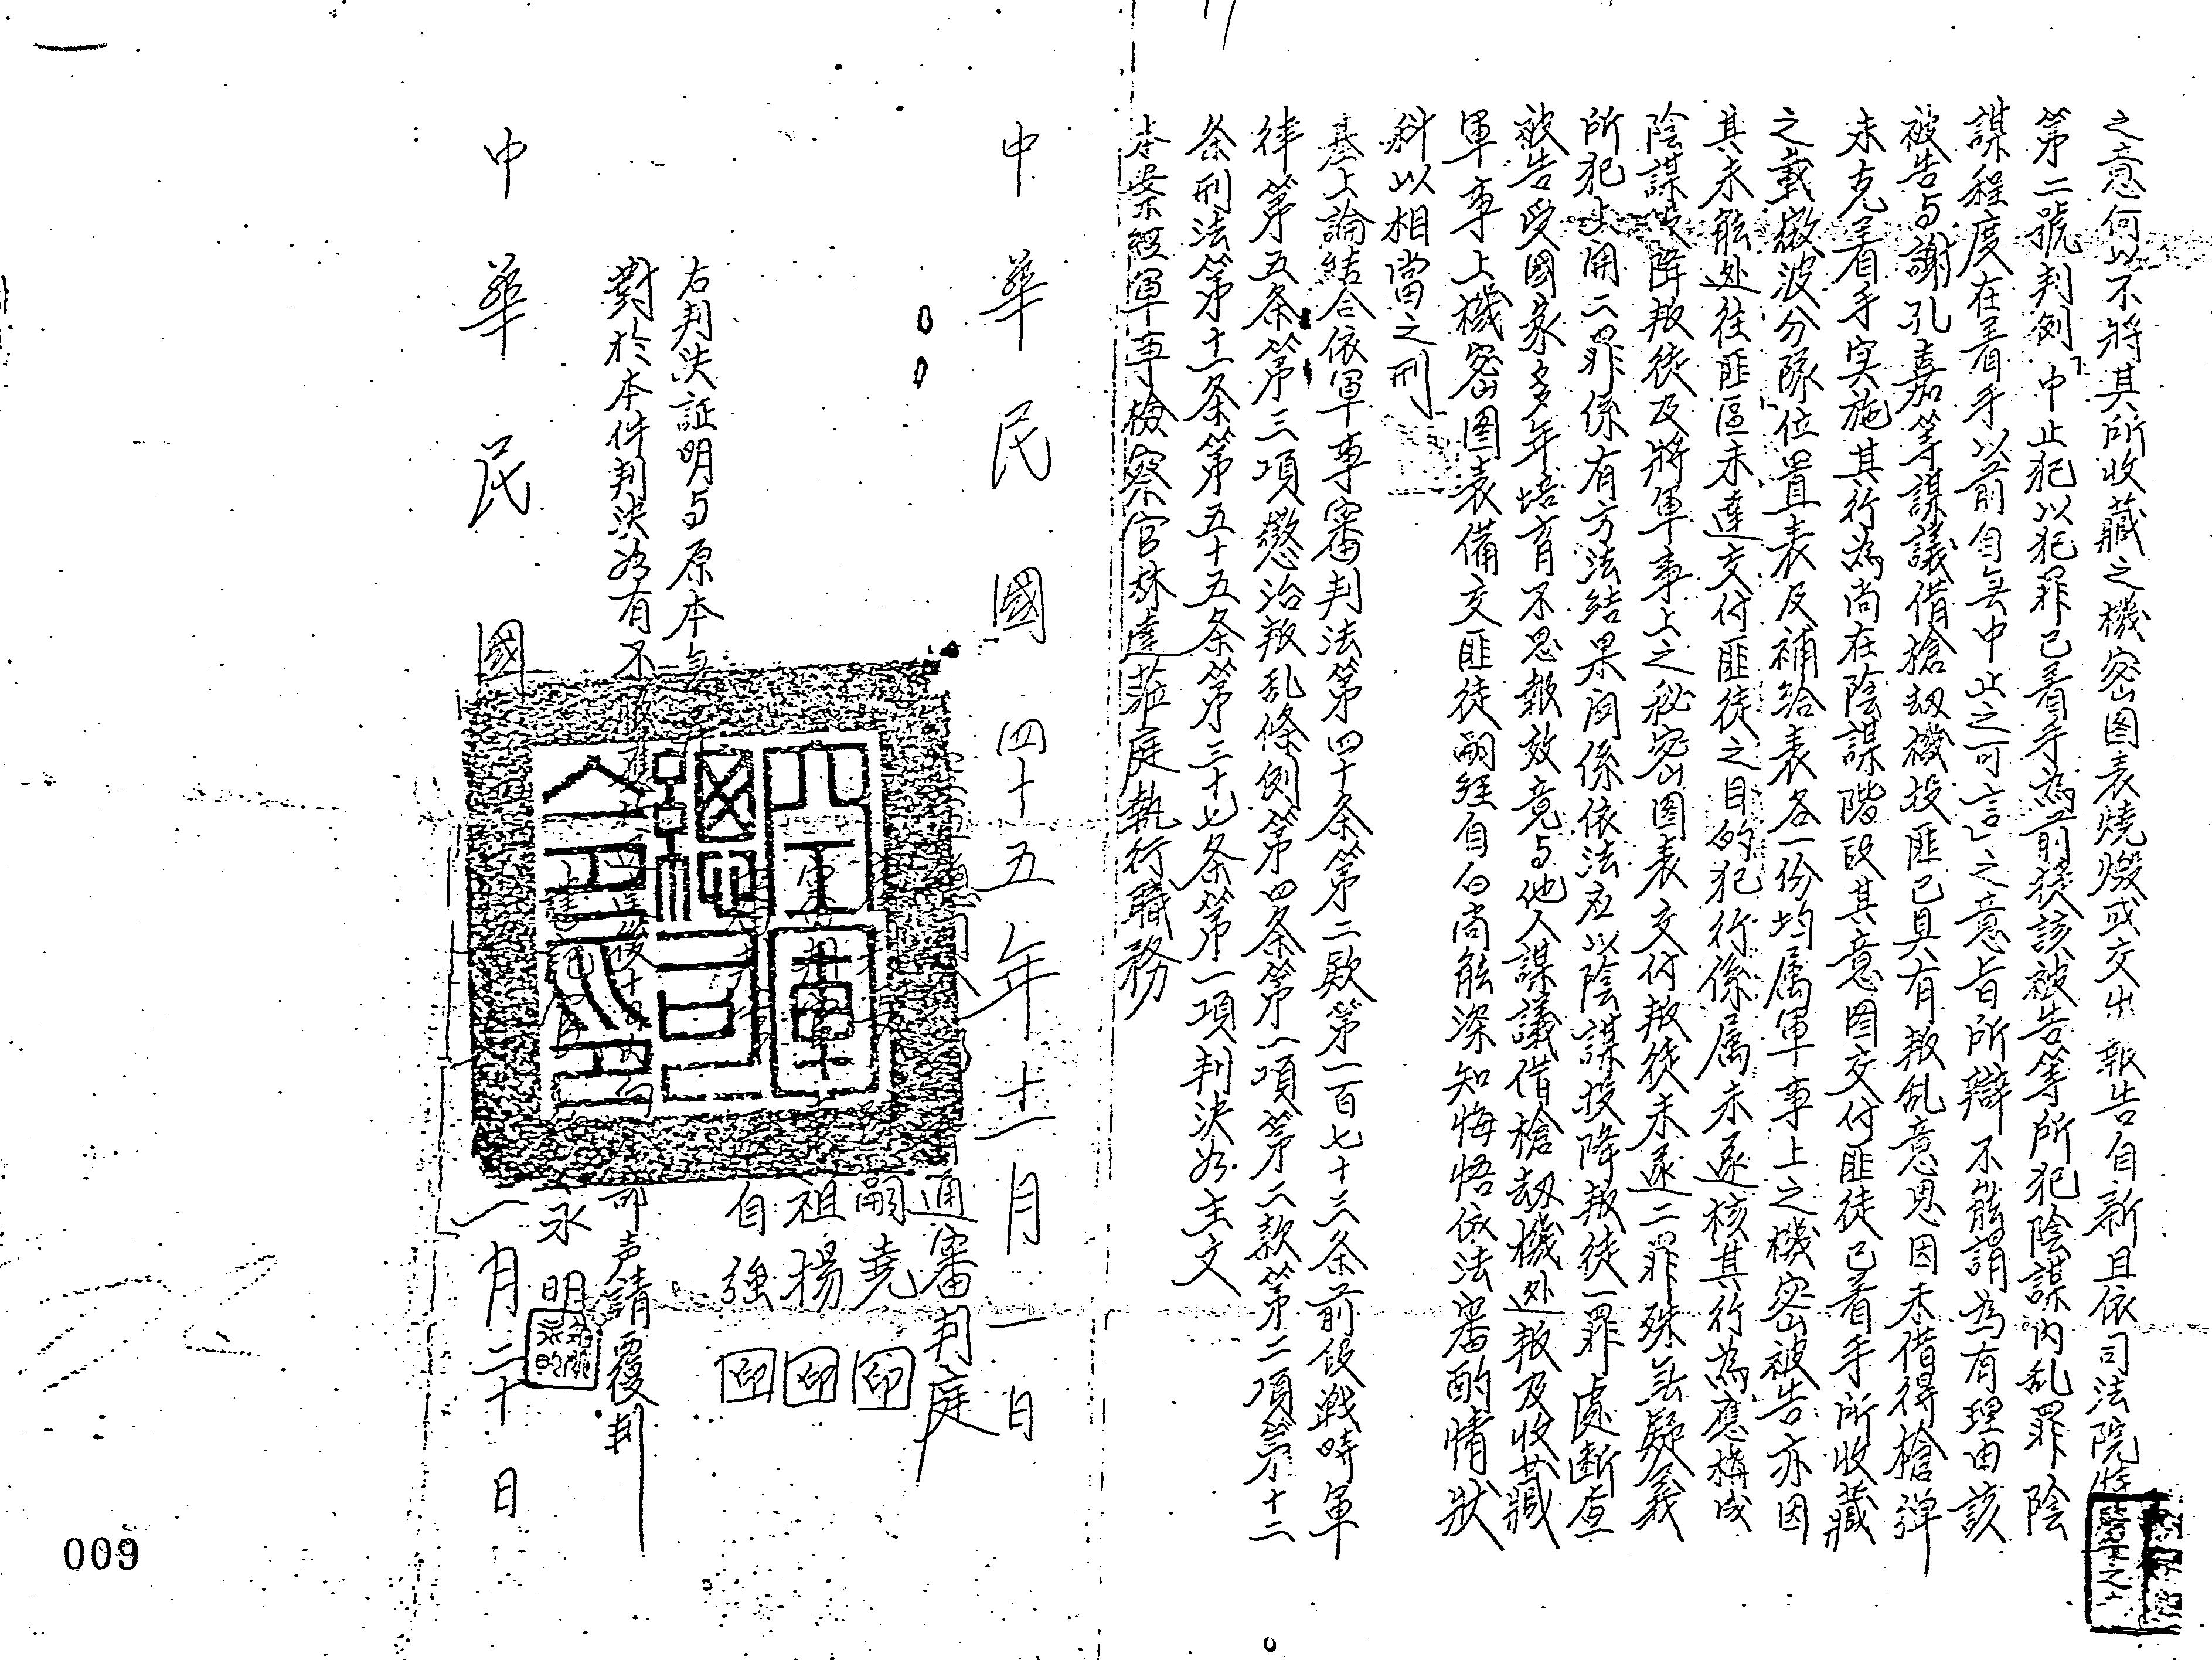 之意何以不將其所收藏之機密图表燒燬或交出報告自新且依司法院
第二號判例「中止犯以犯罪已着手為前提該被告等所犯陰謀內乱罪陰
謀程度在着手以前自無中止之可言」之意旨所辯不能謂為有理由該
被告与謝孔嘉等謀議借槍刼機投匪已具有叛乱意思因未借得槍彈
未克着手实施其行為尚在陰謀階段其意图交付匪徒已着手所收藏
之載徼波分隊位置表及補給表各一份均属軍事上之機密被告亦因
其未能处往匪區未達交付匪徒之目的犯行係属未遂核其行為應構成
陰謀投降叛徒及將軍事上之秘密图表交付叛徒未遂二罪殊無疑義
所犯上開二罪係有方法結果関係依法应以陰謀投降叛徒一罪處断查
被告受國家多年培育不思報效竟与他人謀議借槍刼機处叛及收藏
軍事上機密图表備交匪徒嗣經自白尚能深知悔悟依法審酌情狀
科以相當之刑
基上論結合依軍事審判法第四十条第二款第一百七十三条前段戦時軍
律第五条第三項懲治叛乱條例第四条第一項第二款第二項第十二
条刑法第十一条第五十五条第三十七条第一項判決如主文
本案經軍事檢察官林達蒞庭執行職務
中華民國四十五年十一月二日
通審判庭
嗣堯 印
祖揚 印
自強 印
右判決証明与原本
對於本件判決如有不服 後十日內向 部声請覆判
永明
中華民國 一月二十日
009